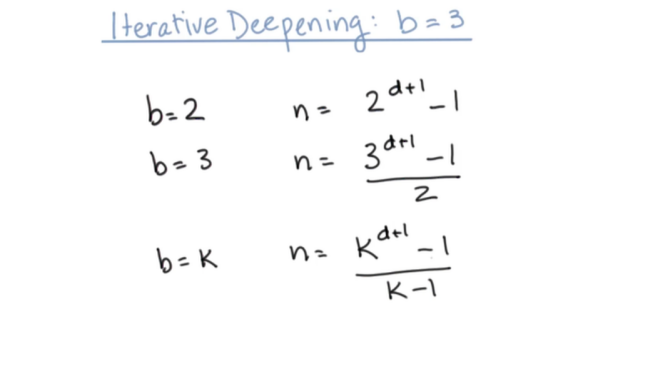 Iterative Deepening: b = 3
b = 2 n = 2^{d+1} - 1
b = 3 n = \frac{3^{d+1} - 1}{2}
b = K n = \frac{K^{d+1} - 1}{K - 1}